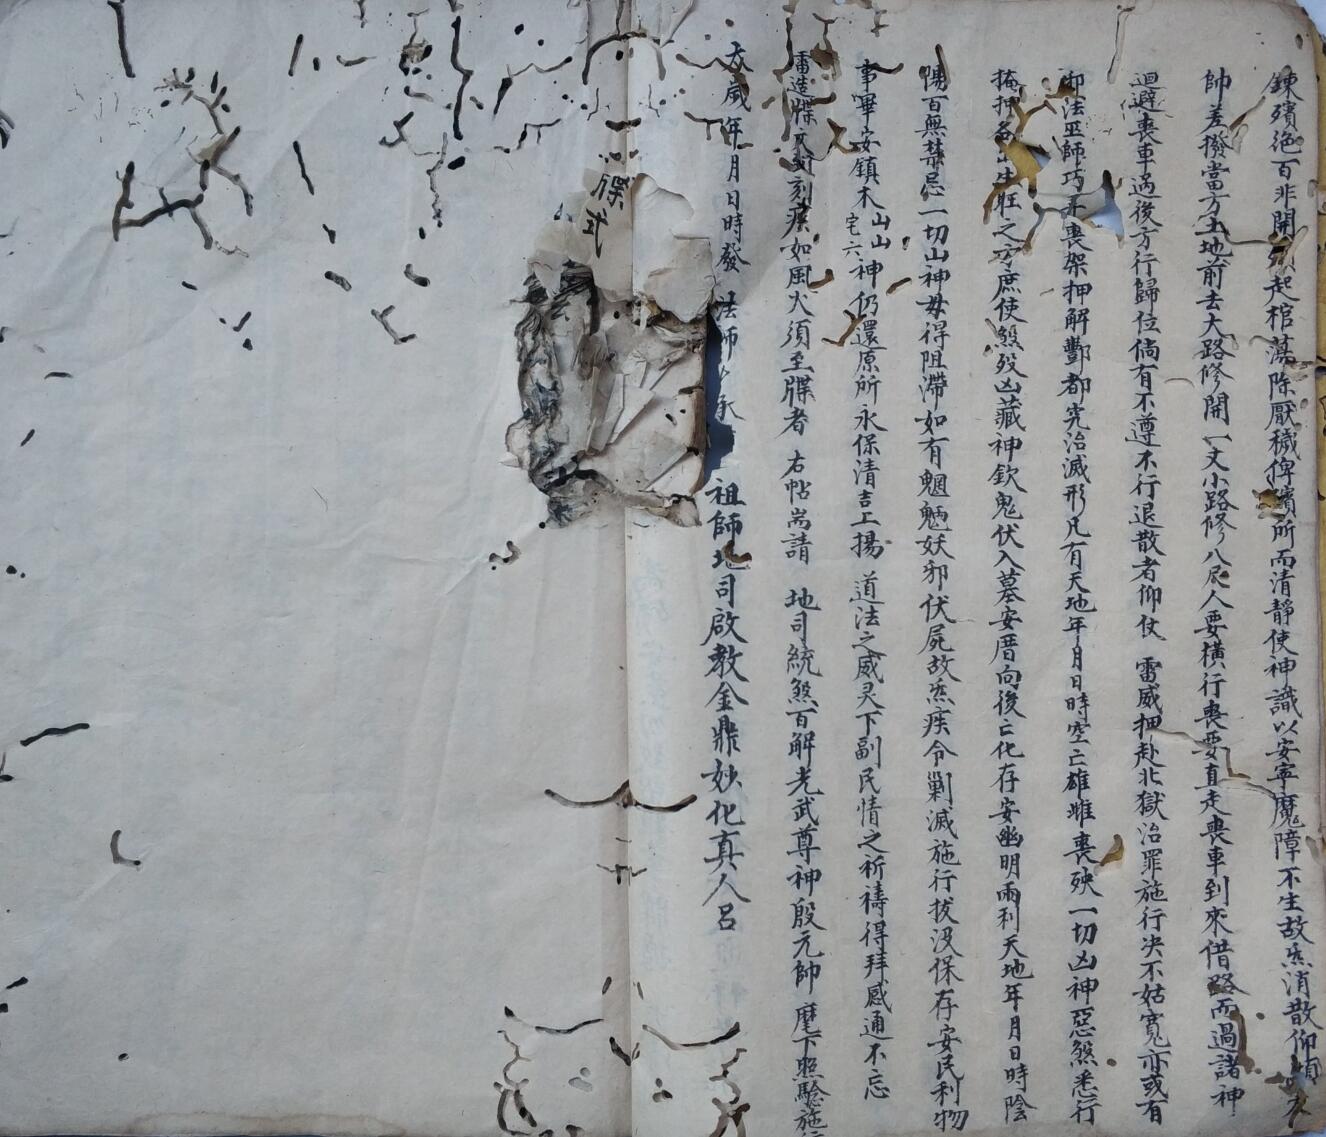 鍊殯絶百非開 起棺蕩除厭穢俾殯所而清靜使神識以安寧魔障不生故炁消散仰
帥差撥當方土地前去大路修開一丈小路修八尺人要橫行喪要直走喪車到來借路而過諸神
迴避喪車過後方行歸位倘有不遵不行退散者仰仗 雷威押赴北獄治罪施行决不姑寬亦或有
法巫師巧弄喪架押解酆都究治滅形凡有天地年月日時空亡雄雌喪殃一切凶神惡煞悉行
掩押 生旺之方庶使煞歿凶藏神欽鬼伏入墓安厝向後亡化存安幽明兩利天地年月日時陰
陽百無禁忌一切山神毋得阻滯如有魍魎妖邪伏屍故炁疾令剿滅施行拔没保存安民利物
事畢安鎮木山山宅六神仍還原所永保清吉上揚 道法之威灵下副民情之祈禱得拜感通不忘
造牒 刻疾如風火須至牒者 右帖耑請 地司統煞百解光武尊神殷元帥 麾下照驗施行
太歲年月日時發 法師 承 祖師地司啟教金鼎妙化真人呂
牒式